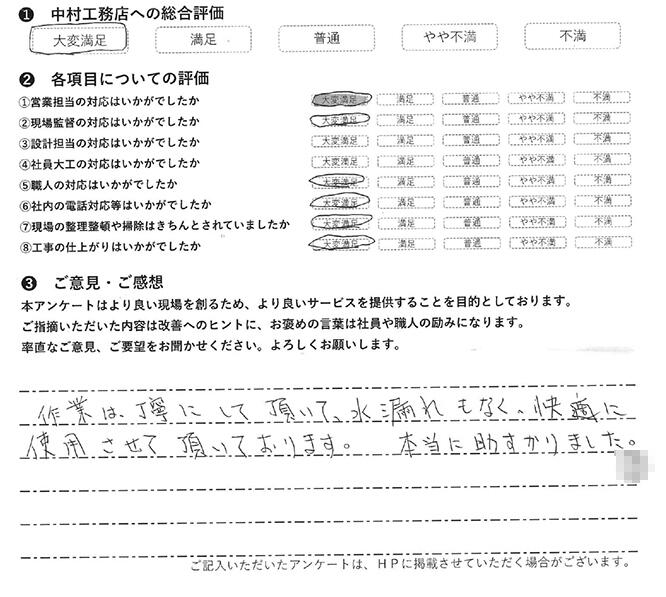 ❶ 中村工務店への総合評価
大変満足 満足 普通 やや不満 不満
❷ 各項目についての評価
①営業担当の対応はいかがでしたか 大変満足 満足 普通 やや不満 不満
②現場監督の対応はいかがでしたか 大変満足 満足 普通 やや不満 不満
③設計担当の対応はいかがでしたか 大変満足 満足 普通 やや不満 不満
④社員大工の対応はいかがでしたか 大変満足 満足 普通 やや不満 不満
⑤職人の対応はいかがでしたか 大変満足 満足 普通 やや不満 不満
⑥社内の電話対応等はいかがでしたか 大変満足 満足 普通 やや不満 不満
⑦現場の整理整頓や掃除はきちんとされていましたか 大変満足 満足 普通 やや不満 不満
⑧工事の仕上がりはいかがでしたか 大変満足 満足 普通 やや不満 不満
❸ ご意見・ご感想
本アンケートはより良い現場を創るため、より良いサービスを提供することを目的としております。
ご指摘いただいた内容は改善へのヒントに、お褒めの言葉は社員や職人の励みになります。
率直なご意見、ご要望をお聞かせください。よろしくお願いします。
作業は、丁寧にして頂いて、水漏れもなく、快適に
使用させて頂いております。 本当に助すかりました。
ご記入いただいたアンケートは、HPに掲載させていただく場合がございます。